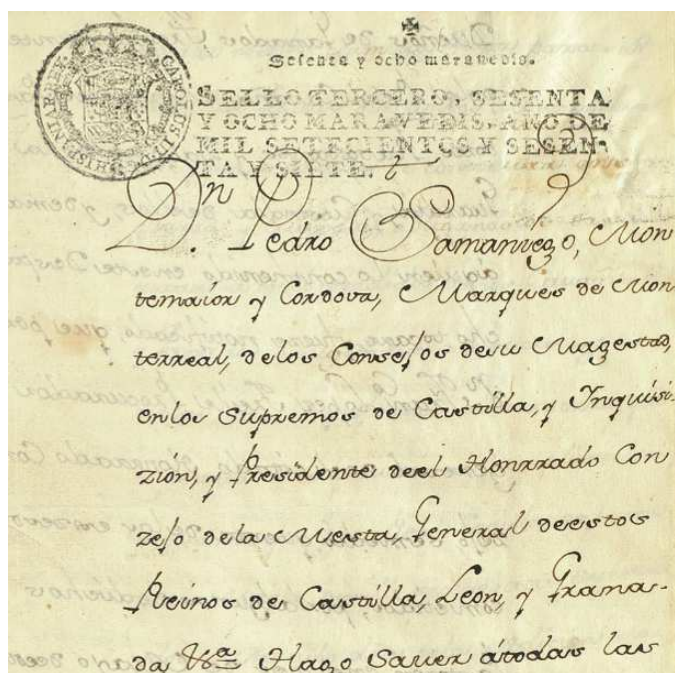 CAROLUS III D G HISPANIAR REX
Sesenta y ocho maravedis.
SELLO TERCERO, SESENTA
Y OCHO MARAVEDIS, AÑO DE
MIL SETECIENTOS Y SESEN-
TA Y SIETE.
Dn. Pedro Samaniego, Mon
temaior y Cordova, Marques de Mon
terreal, delos Consejos desu Magestad,
enlos Supremos de Castilla, y Inquisi-
zión, y Presidente deel Honrrado Con
zejo dela Mesta, General deestos
Reinos de Castilla, Leon, y Grana-
da Va. Hago Saver átodas las